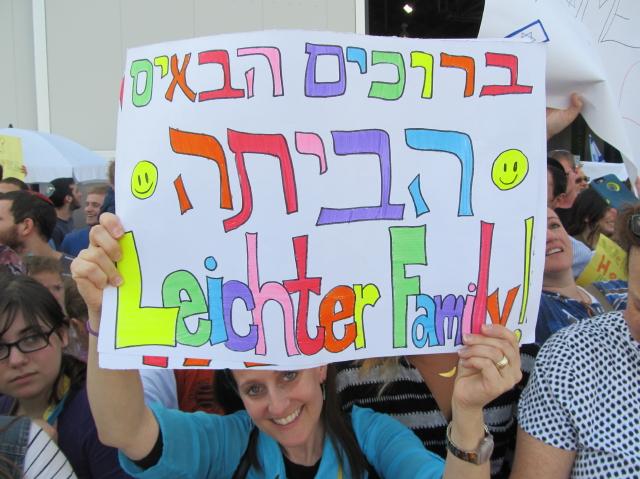 ברוכים הבאים
הביתה
Leichter Family!